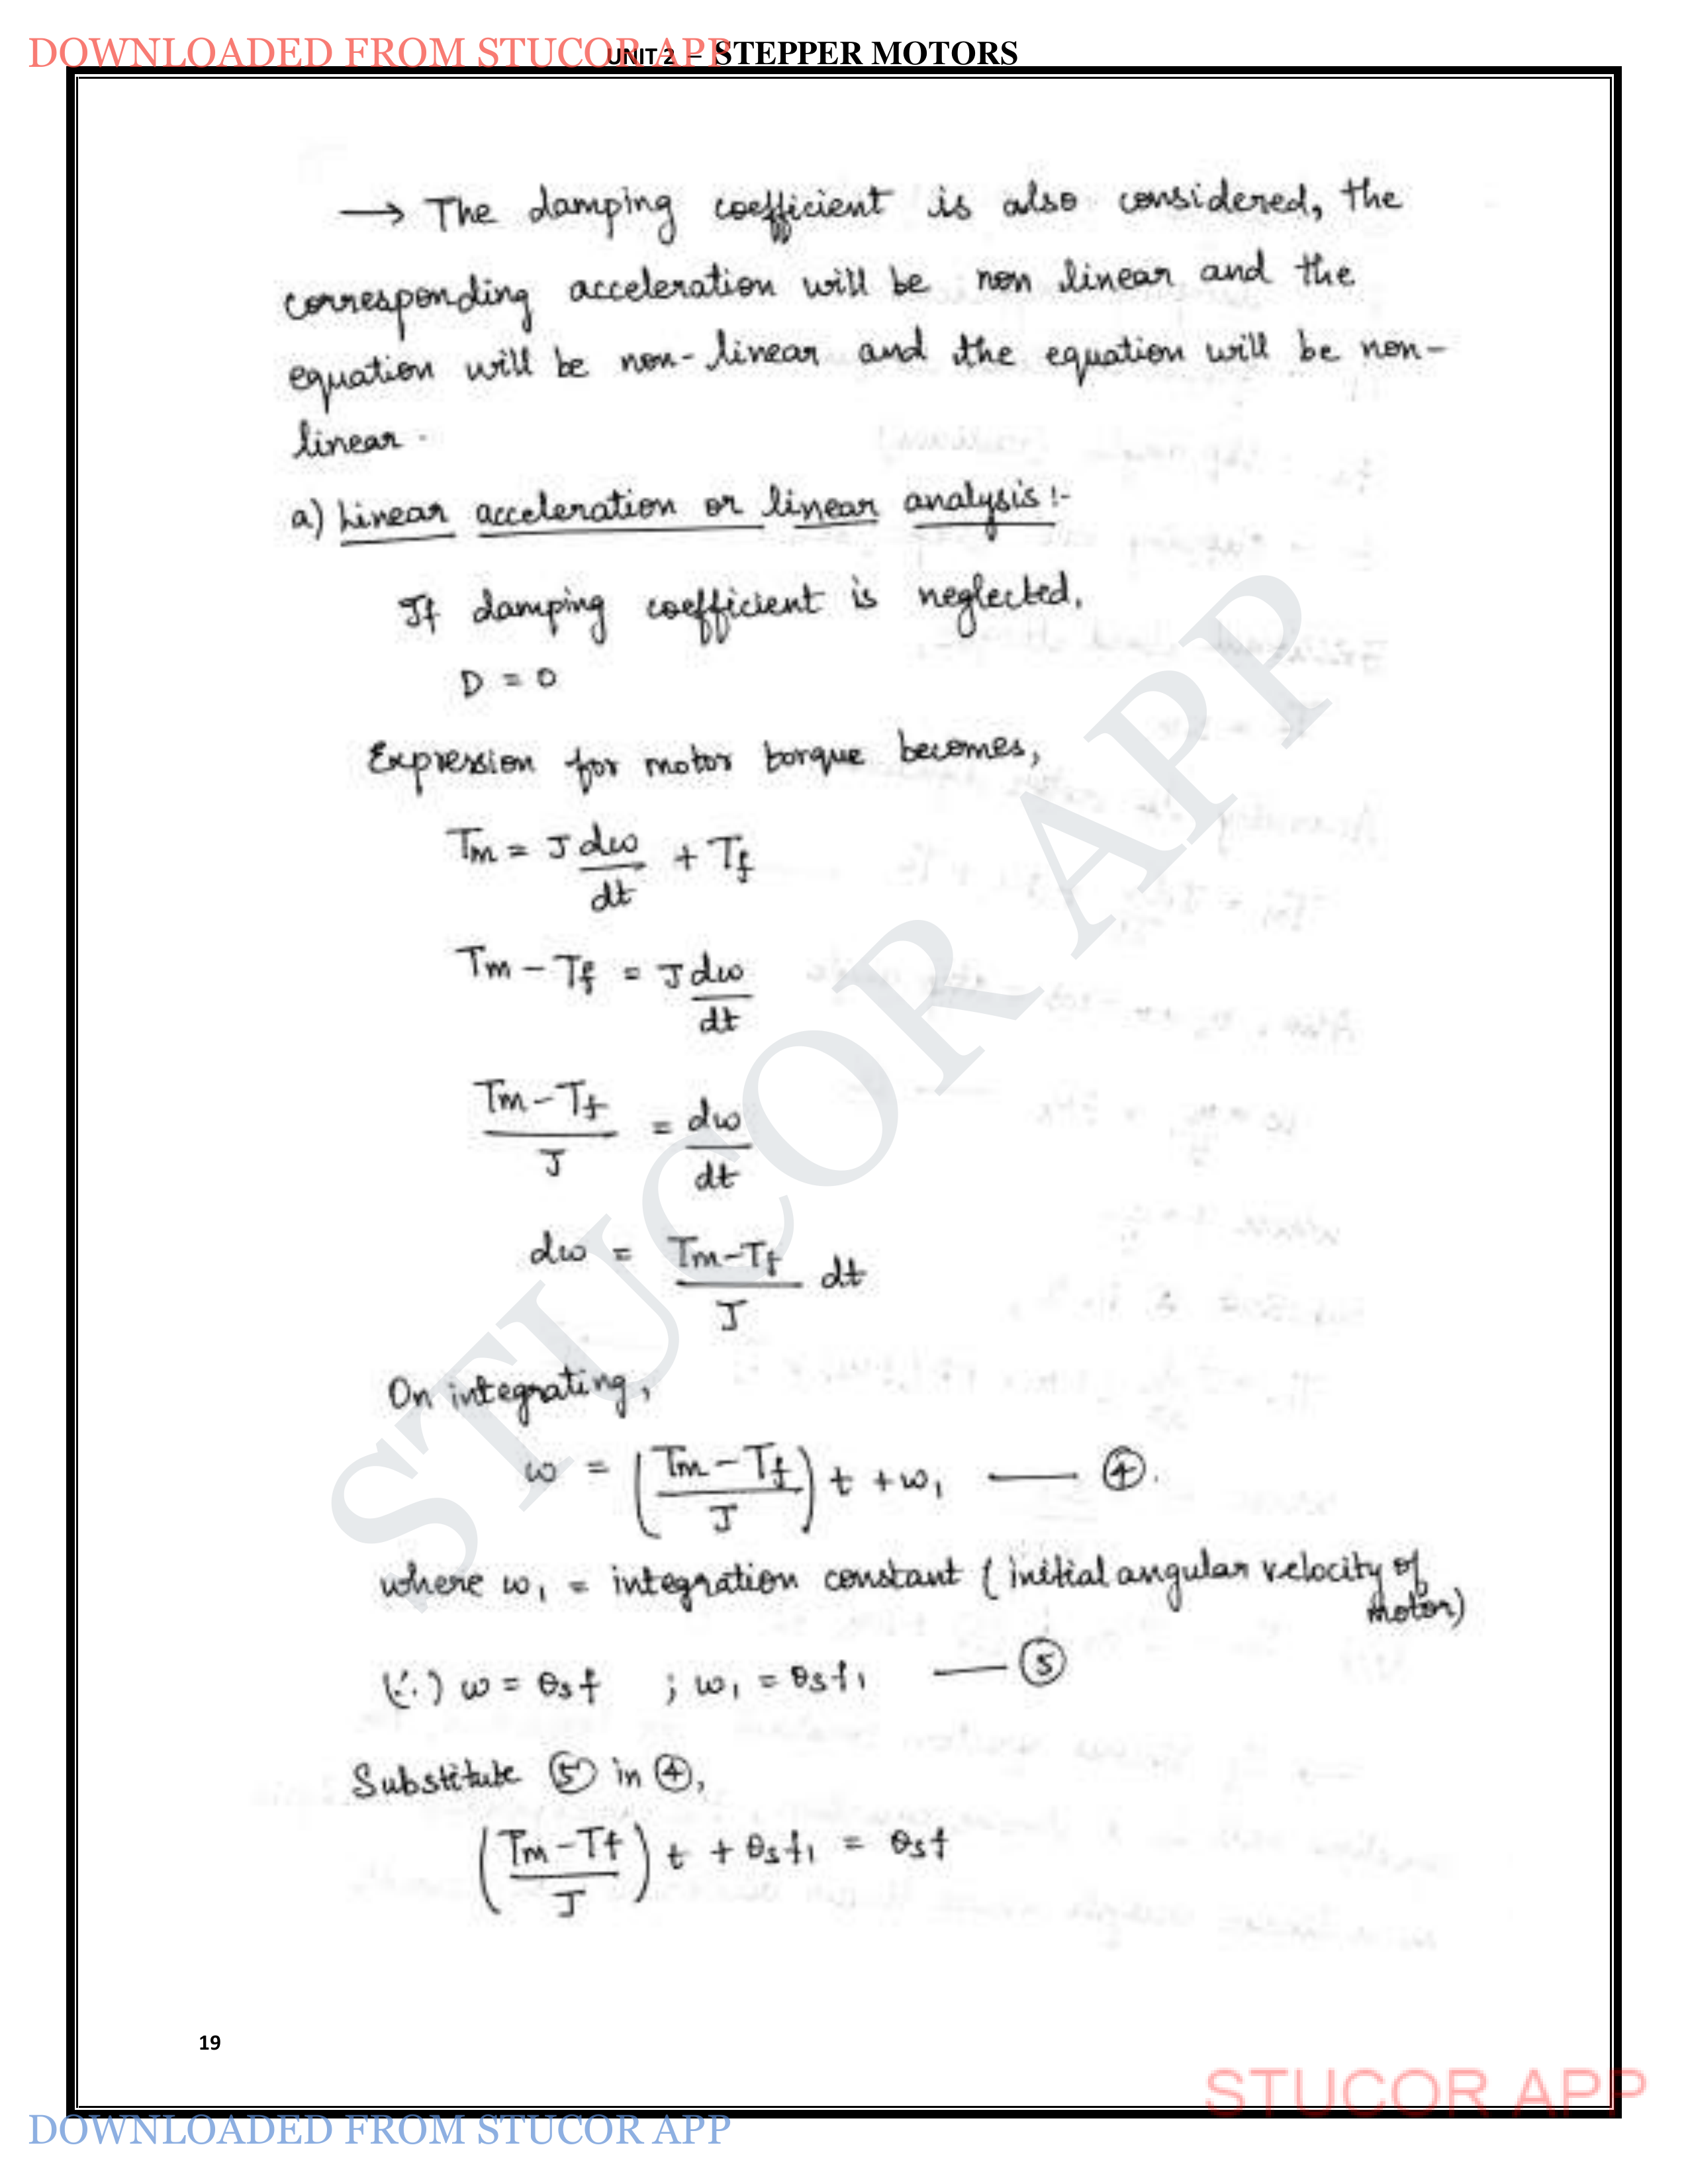 DOWNLOADED FROM STUCOR APP
UNIT 2 – STEPPER MOTORS
→ The damping coefficient is also considered, the
corresponding acceleration will be non linear and the
equation will be non-linear and the equation will be non-
linear.
a) Linear acceleration or linear analysis:-
If damping coefficient is neglected,
D = 0
Expression for motor torque becomes,
Tm = J dω/dt + Tf
Tm - Tf = J dω/dt
(Tm - Tf)/J = dω/dt
dω = (Tm - Tf)/J dt
On integrating,
ω = ((Tm - Tf)/J) t + ω1 —— ④.
where ω1 = integration constant (initial angular velocity of
motor)
(∵) ω = θsf ; ω1 = θsf1 —— ⑤
Substitute ⑤ in ④,
((Tm - Tf)/J) t + θsf1 = θsf
STUCOR APP
19
STUCOR APP
DOWNLOADED FROM STUCOR APP